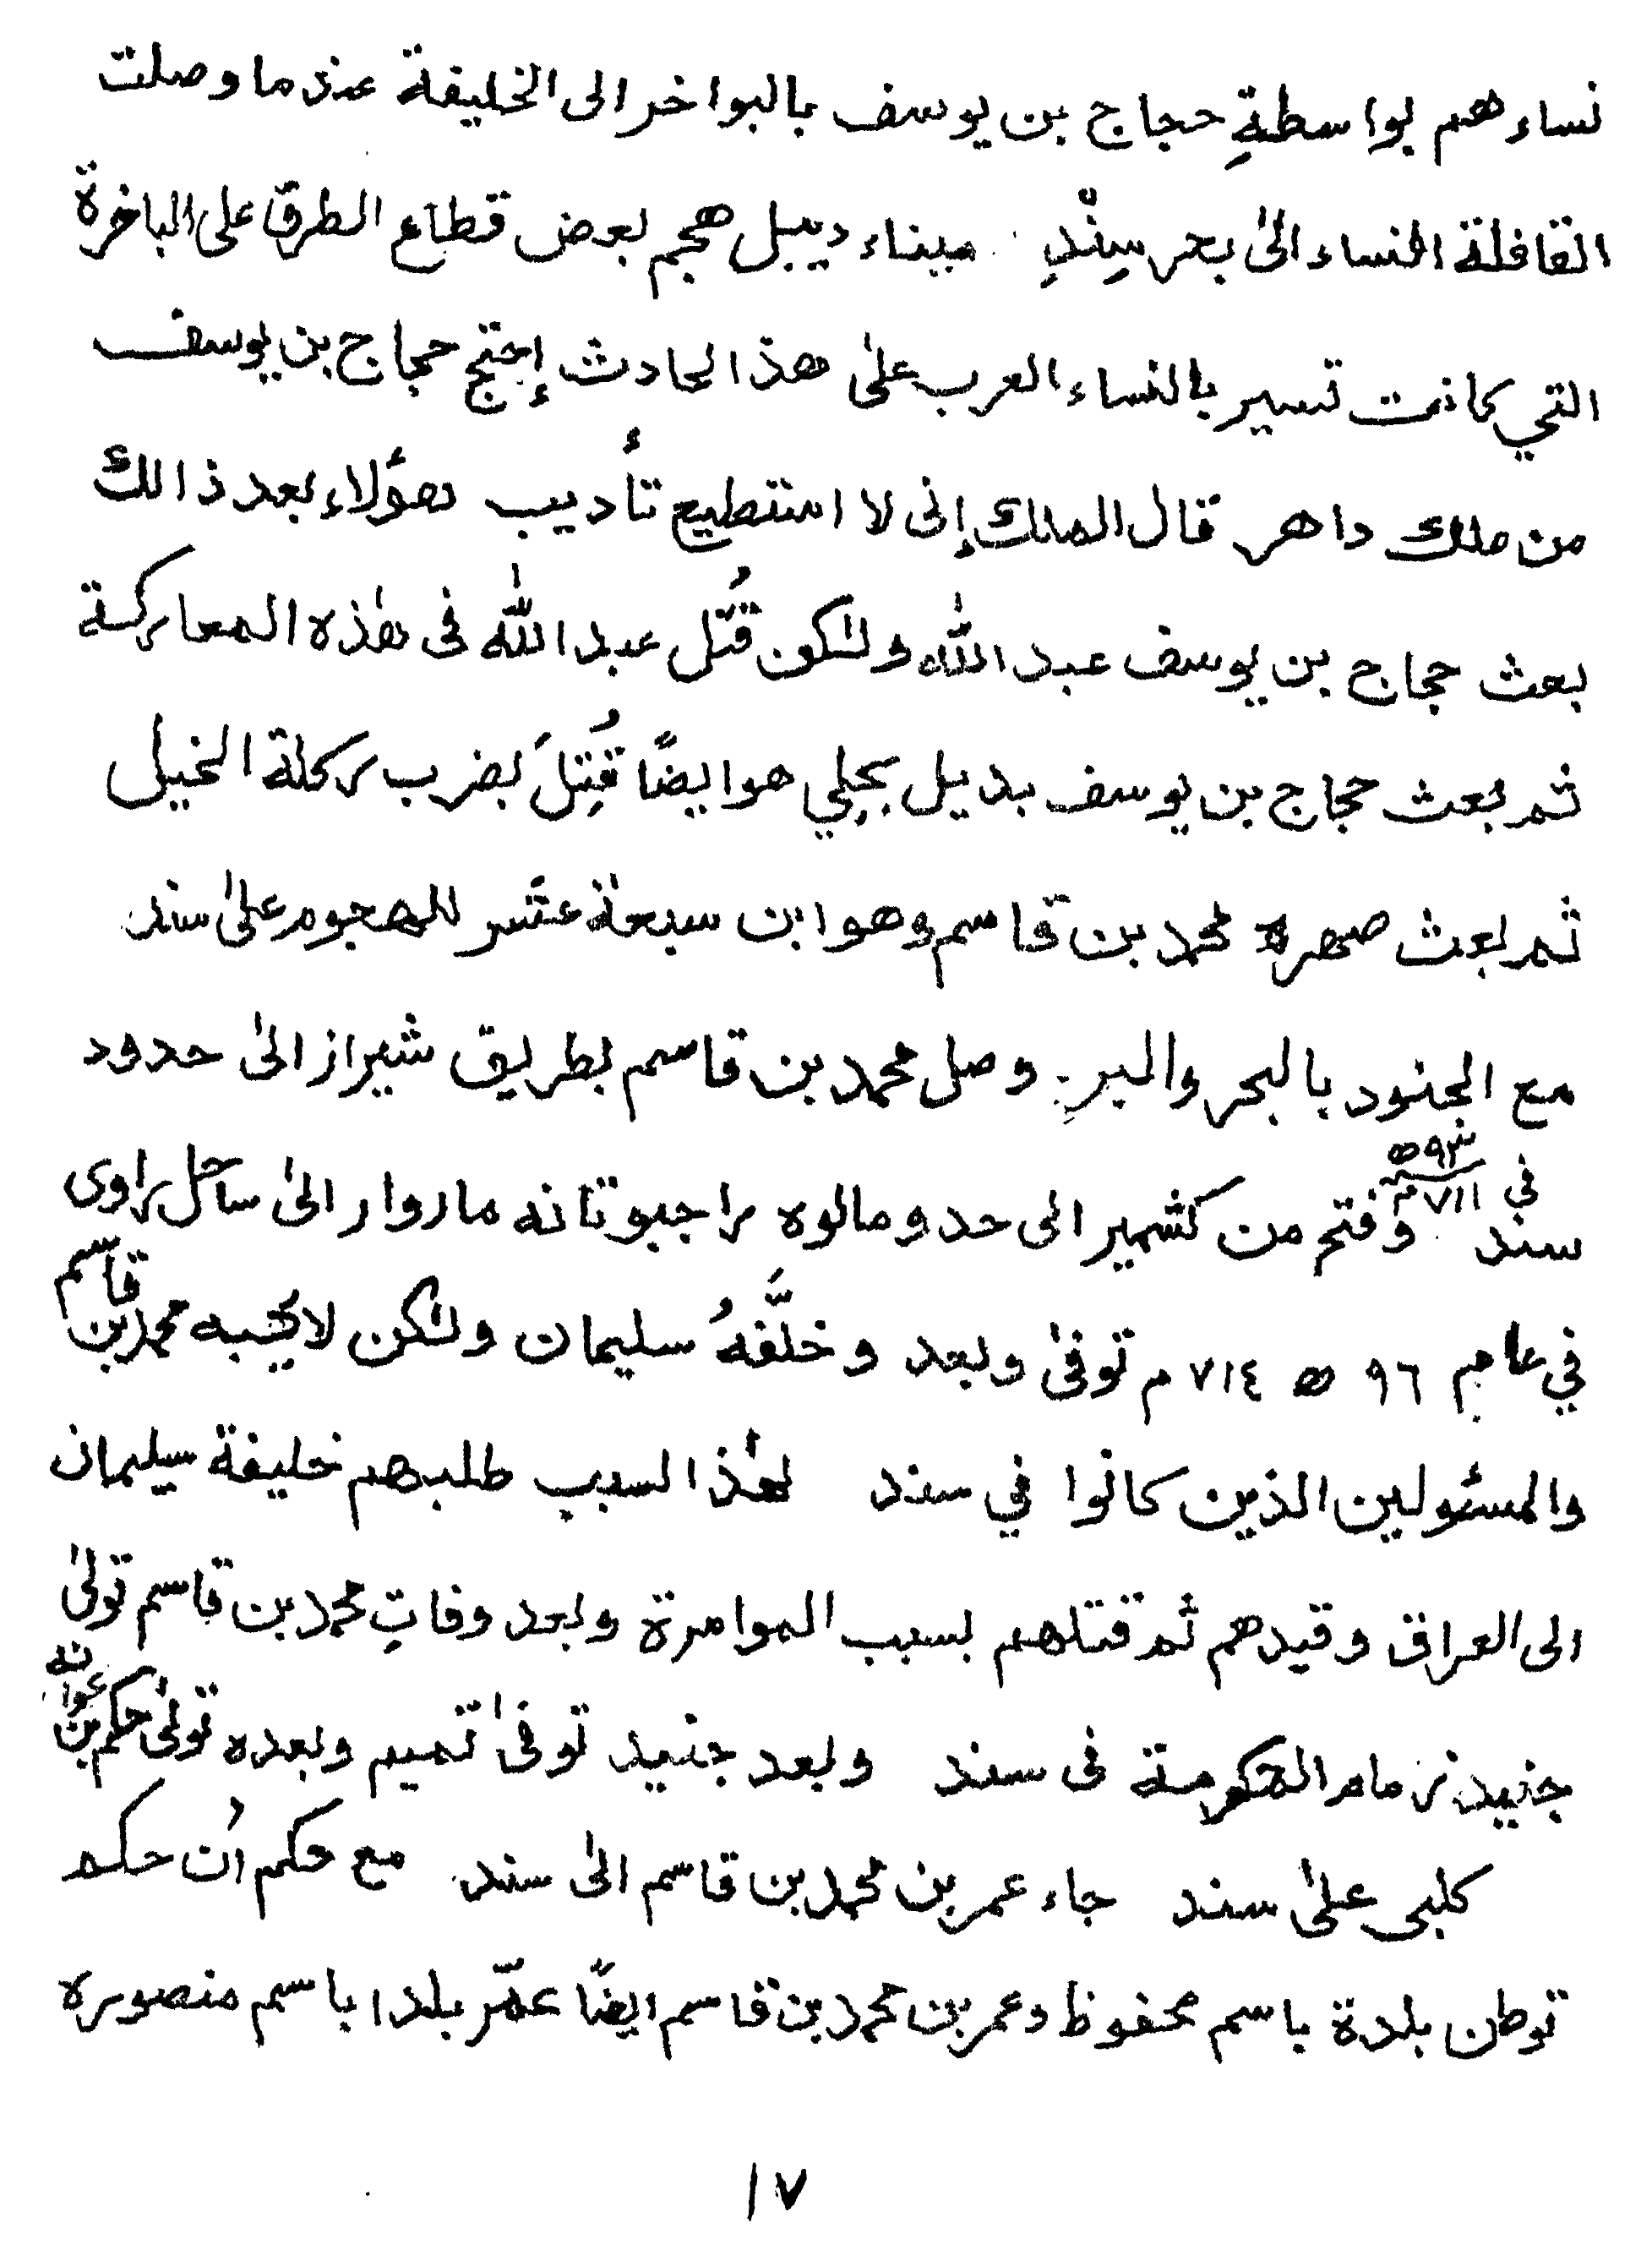 نساءهم بواسطةِ حجاج بن يوسف بالبواخر الى الخليفة عندما وصلت
القافلة النساء الىٰ بحر سِنْدِ ميناء ديبل هجم بعض قطاع الطرق على الباخرة
التي كانت تسير بالنساء العرب علىٰ هذا الحادث إحتج حجاج بن يوسف
من ملك داهر قال الملك إنى لا استطيع تأديب هؤلاء بعد ذالك
بعث حجاج بن يوسف عبد الله ولٰكن قُتل عبد الله فى هٰذه المعاركة
ثم بعث حجاج بن يوسف بديل بجلي هو ايضًا قُتِلَ بضرب ركلة الخيل
ثم بعث صهره محمد بن قاسم وهو ابن سبعة عشر للهجوم علىٰ سند
مع الجنود بالبحر والبرِ. وصل محمد بن قاسم بطريق شيراز الىٰ حدود
سند في ٩٣ھ ٧١١م وفتح من كشمير الى حد و مالوه راجبوتانه ماروار الىٰ ساحل راوى
في عام ٩٦ ھ ٧١٤ م توفىٰ وبعد و خلَّفهُ سليمان ولٰكن لا يحبه محمد بن قاسم
والمسئولين الذين كانوا في سند لهٰذا السبب طلبهم خليفة سيليمان
الى العراق وقيدهم ثم قتلهم بسبب الموامرة وبعد وفاتِ محمد بن قاسم تولىٰ
جنيد زمام الحكومة فى سند وبعد جنيد توفىٰ تميم وبعده تولىٰ حكم بن عوانه
كلبى علىٰ سند جاء عمر بن محمد بن قاسم الىٰ سند مع حكم أن حكم
توطن بلدة باسم محفوظ وعمر بن محمد بن قاسم ايضًا عمّر بلدا باسم منصوره
١٧